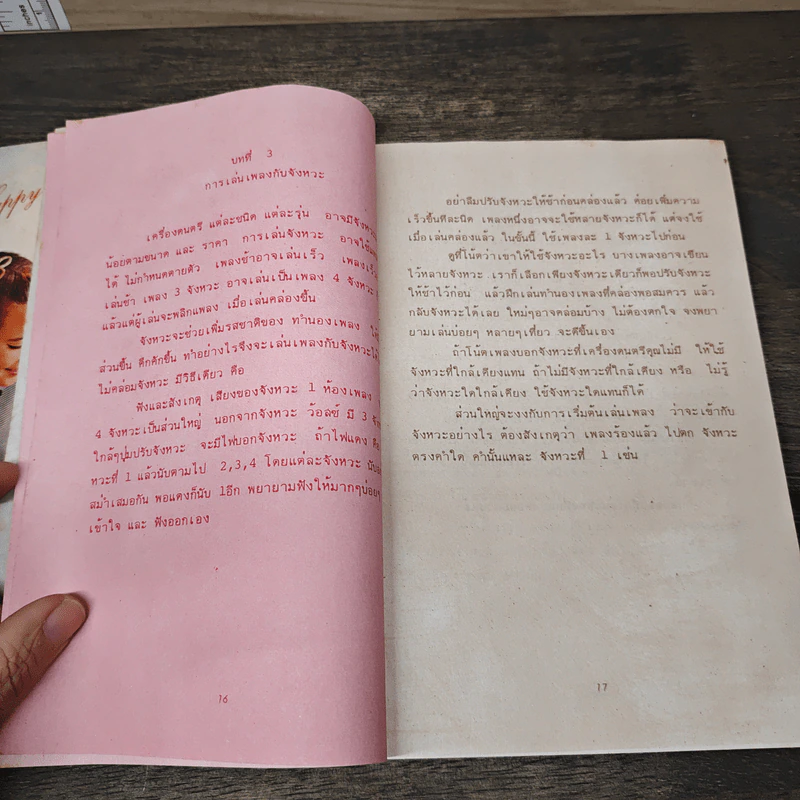 inches
appy
บทที่ 3
การเล่นเพลงกับจังหวะ
เครื่องดนตรี แต่ละชนิด แต่ละรุ่น อาจมีจังหวะ
น้อยตามขนาด และ ราคา การเล่นจังหวะ อาจใช้
ได้ ไม่กำหนดตายตัว เพลงช้าอาจเล่นเร็ว เพลงเร็ว
เล่นช้า เพลง 3 จังหวะ อาจเล่นเป็นเพลง 4 จังหวะ
แล้วแต่ผู้เล่นจะพลิกแพลง เมื่อเล่นคล่องขึ้น
จังหวะจะช่วยเพิ่มรสชาติของ ทำนองเพลง ให้
ส่วนขึ้น คึกคักขึ้น ทำอย่างไรจึงจะเล่นเพลงกับจังหวะได้
ไม่คล่อมจังหวะ มีวิธีเดียว คือ
ฟังและสังเกตุ เสียงของจังหวะ 1 ห้องเพลง
4 จังหวะเป็นส่วนใหญ่ นอกจากจังหวะ ว้อลซ์ มี 3
ใกล้ๆปุ่มปรับจังหวะ จะมีไฟบอกจังหวะ ถ้าไฟแดง คือ
หวะที่ 1 แล้วนับตามไป 2,3,4 โดยแต่ละจังหวะ
สม่ำเสมอกัน พอแดงก็นับ 1อีก พยายามฟังให้มากๆบ่อยๆ
เข้าใจ และ ฟังออกเอง
16
อย่าลืมปรับจังหวะให้ช้าก่อนคล่องแล้ว ค่อยเพิ่มความ
เร็วขึ้นทีละนิด เพลงหนึ่งอาจจะใช้หลายจังหวะก็ได้ แต่จงใช้
เมื่อเล่นคล่องแล้ว ในขั้นนี้ ใช้เพลงละ 1 จังหวะไปก่อน
ดูที่โน้ตว่าเขาให้ใช้จังหวะอะไร บางเพลงอาจเขียน
ไว้หลายจังหวะ เราก็เลือกเพียงจังหวะเดียวก็พอปรับจังหวะ
ให้ช้าไว้ก่อน แล้วฝึกเล่นทำนองเพลงที่คล่องพอสมควร แล้ว
กลับจังหวะได้เลย ใหม่ๆอาจคล่อมบ้าง ไม่ต้องตกใจ จงพยา
ยามเล่นบ่อยๆ หลายๆเที่ยว จะดีขึ้นเอง
ถ้าโน้ตเพลงบอกจังหวะที่เครื่องดนตรีคุณไม่มี ให้ใช้
จังหวะที่ใกล้เคียงแทน ถ้าไม่มีจังหวะที่ใกล้เคียง หรือ ไม่รู้
ว่าจังหวะใดใกล้เคียง ใช้จังหวะใดแทนก็ได้
ส่วนใหญ่จะงงกับการเริ่มต้นเล่นเพลง ว่าจะเข้ากับ
จังหวะอย่างไร ต้องสังเกตุว่า เพลงร้องแล้ว ไปตก จังหวะ
ตรงคำใด คำนั้นแหละ จังหวะที่ 1 เช่น
17